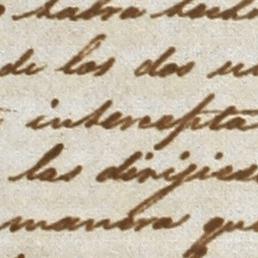 habra hech
de los dos u
intercepta
las dirijies
manera que